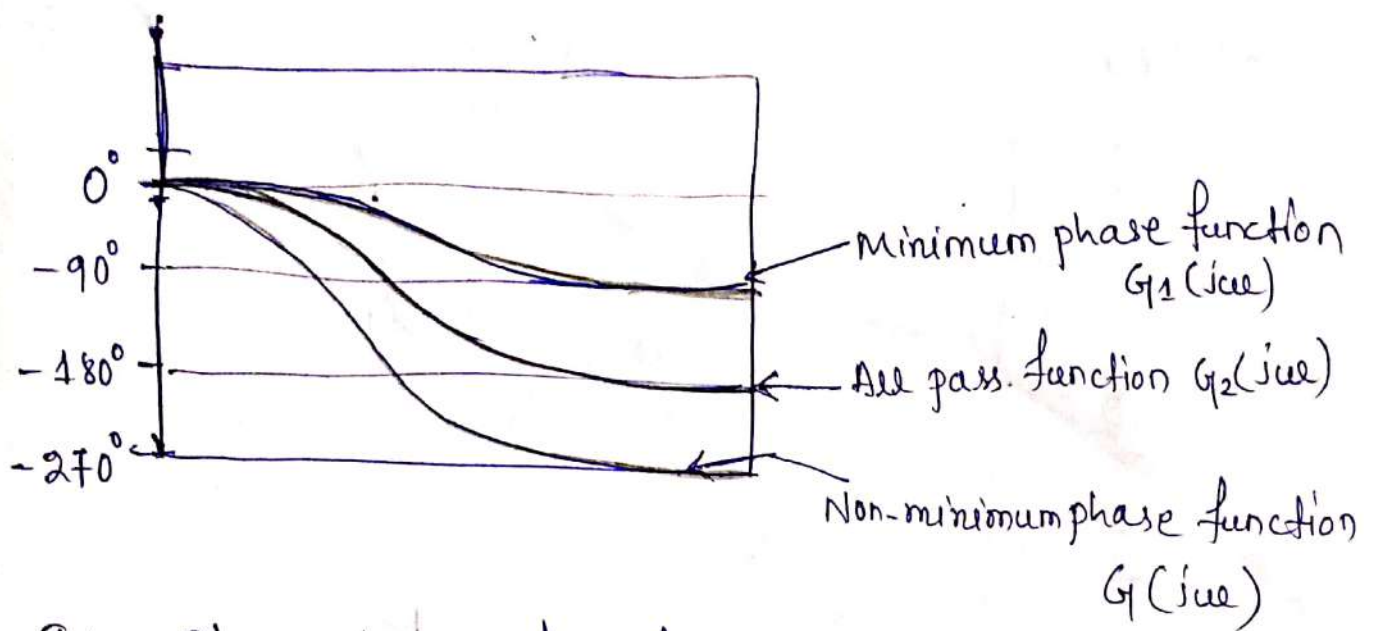 0°
-90°
-180°
-270°
Minimum phase function
G1(jω)
All pass. function G2(jω)
Non-minimum phase function
G(jω)